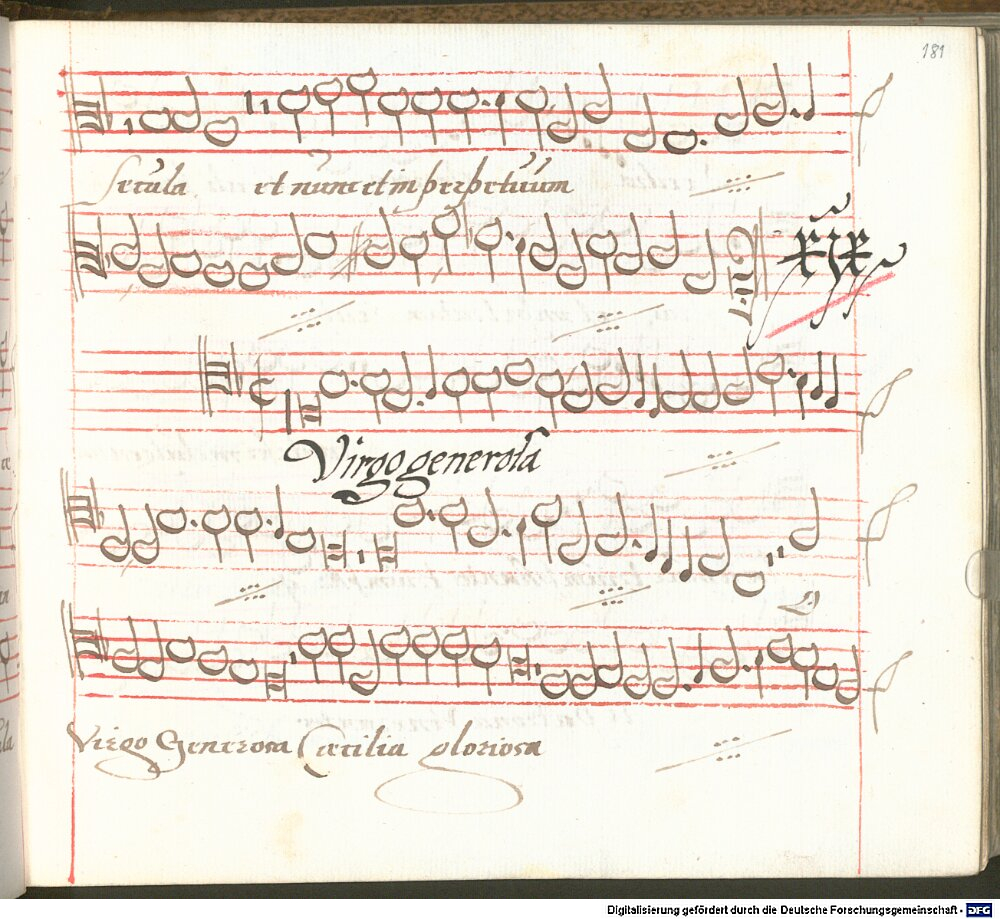 181
secula et nunc et in perpetuum
xix
Virgo generosa
Virgo Generosa Cæcilia gloriosa
Digitalisierung gefördert durch die Deutsche Forschungsgemeinschaft - DFG